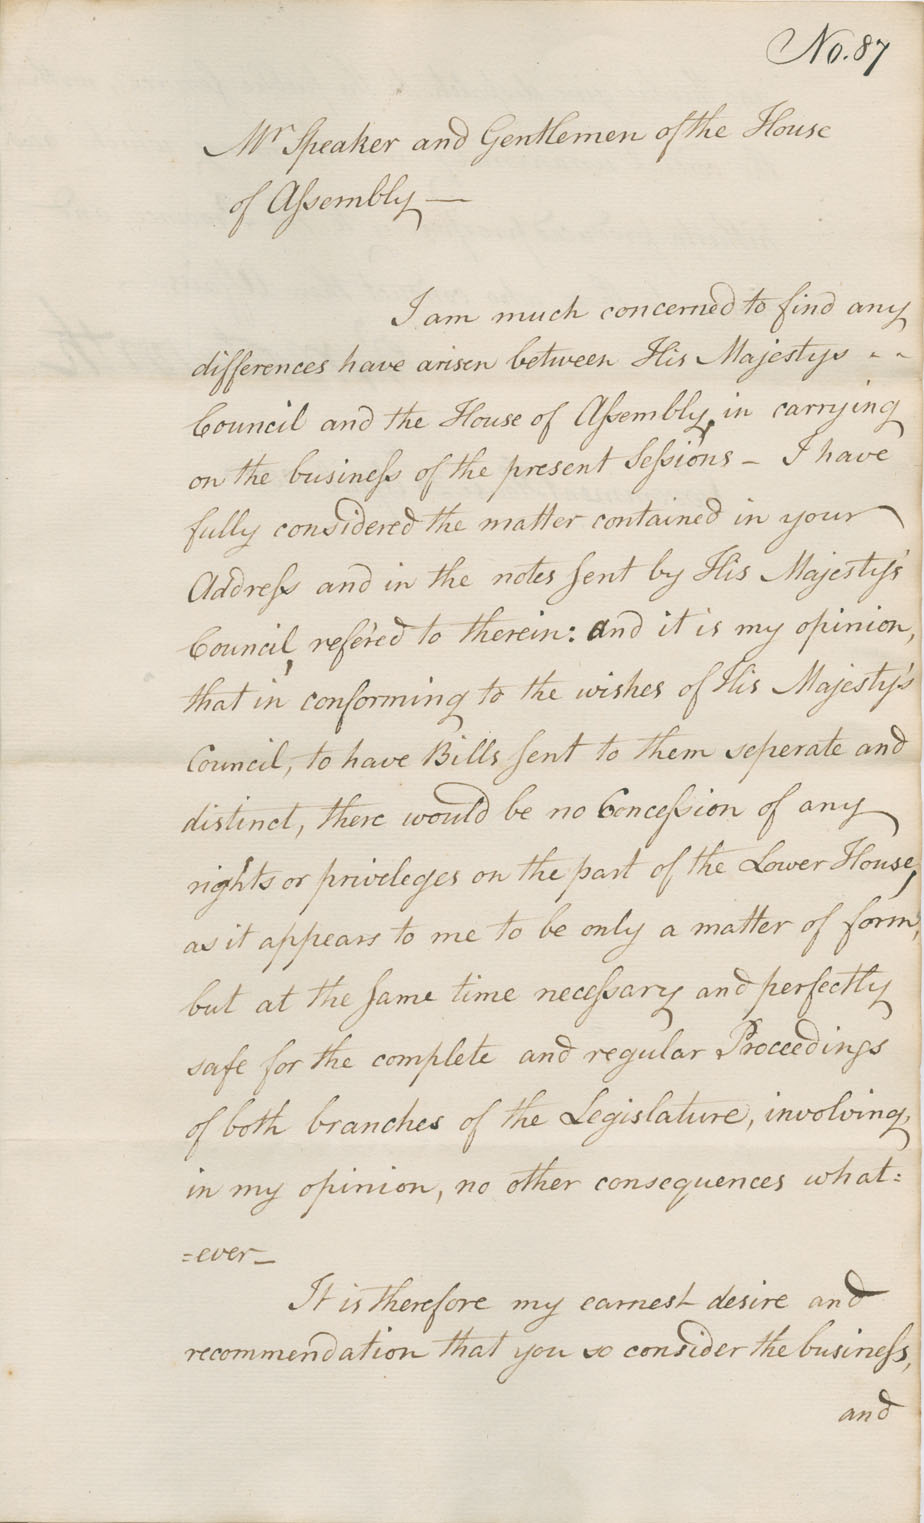 No. 87
Mr Speaker and Gentlemen of the House
of Assembly —
I am much concerned to find any
differences have arisen between His Majestys - -
Council and the House of Assembly, in carrying
on the business of the present Sessions - I have
fully considered the matter contained in your
Address and in the notes sent by His Majesty's
Council, refer'ed to therein: and it is my opinion,
that in conforming to the wishes of His Majesty's
Council, to have Bills sent to them seperate and
distinct, there would be no Concession of any
rights or privileges on the part of the Lower House,
as it appears to me to be only a matter of form,
but at the same time necessary and perfectly
safe for the complete and regular Proceedings
of both branches of the Legislature, involving,
in my opinion, no other consequences what=
=ever -
It is therefore my earnest desire and
recommendation that you so consider the business,
and